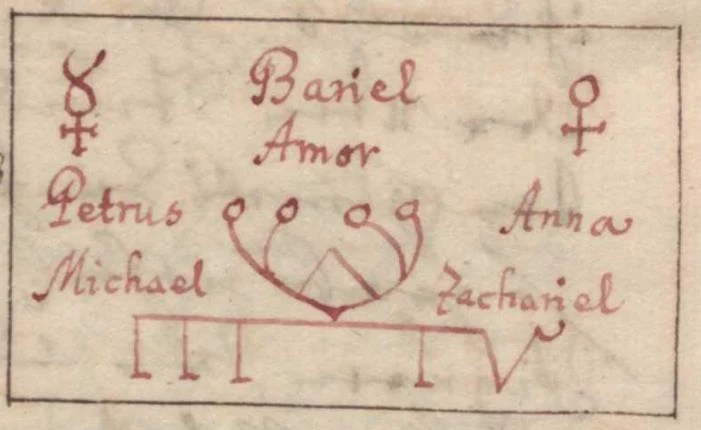 ☿ Bariel ♀
Amor
Petrus Anna
Michael Zachariel